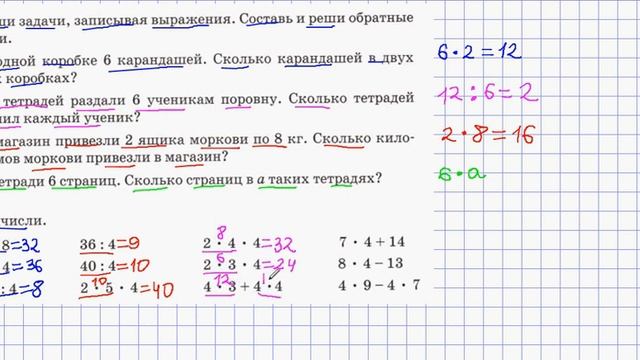 ши задачи, записывая выражения. Составь и реши обратные
и.
одной коробке 6 карандашей. Сколько карандашей в двух
х коробках?
тетрадей раздали 6 ученикам поровну. Сколько тетрадей
чил каждый ученик?
магазин привезли 2 ящика моркови по 8 кг. Сколько кило-
мов моркови привезли в магазин?
етради 6 страниц. Сколько страниц в a таких тетрадях?
6 · 2 = 12
12 : 6 = 2
2 · 8 = 16
6 · a
числи.
8 = 32 36 : 4 = 9 2 · 4 · 4 = 32 7 · 4 + 14
8
4 = 36 40 : 4 = 10 2 · 3 · 4 = 24 8 · 4 − 13
6
: 4 = 8 2 · 5 · 4 = 40 4 · 3 + 4 · 4 4 · 9 − 4 · 7
10 12 1